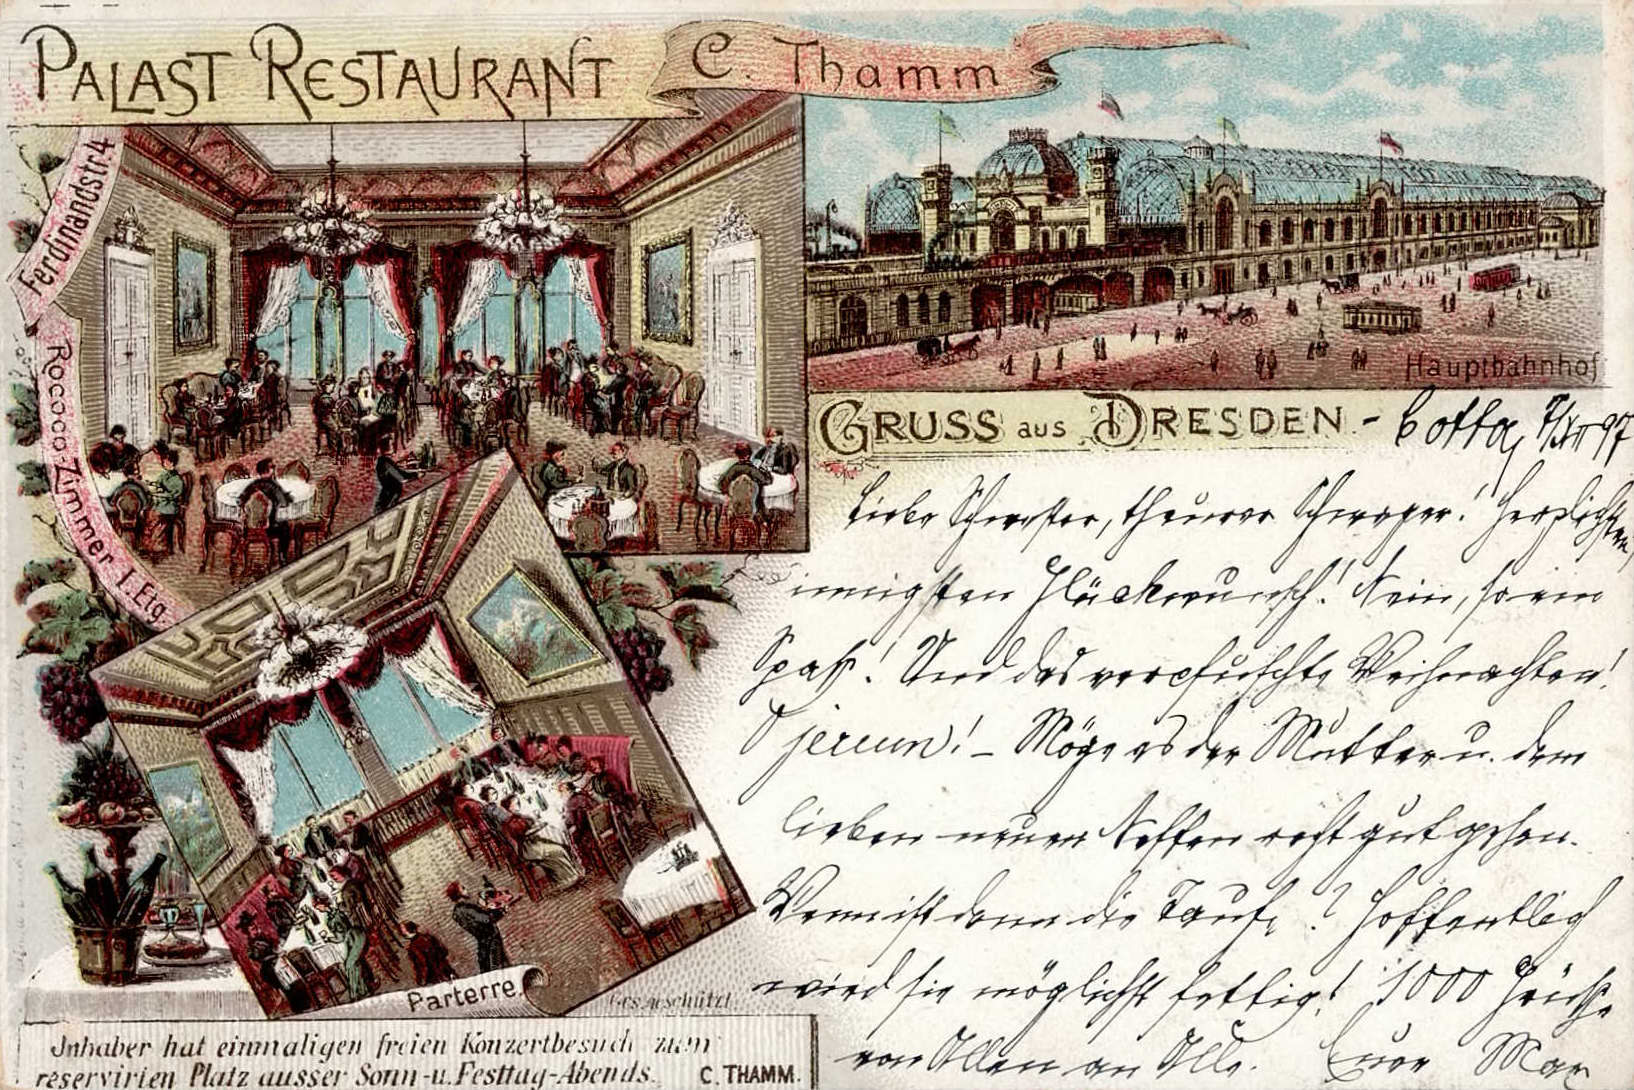 PALAST RESTAURANT C. Thamm
Ferdinandstr. 4
Rococo-Zimmer I. Etg.
Hauptbahnhof
GRUSS aus DRESDEN - Cotta, 7/XII 97
Liebe Schwester, theurer Schwager! Herzlichsten,
innigsten Glückwunsch! Nein, so ein
Spaß! Und das verpfuschte Weihnachten!
O jerum! – Möge es der Mutter u. dem
lieben neuen Neffen recht gut gehen.
Wenn ist denn die Taufe? Hoffentlich
wird sie möglichst fettig! 1000 Grüße
von Allen an Alle. Euer Max
Parterre.
Ges. geschützt
Inhaber hat einmaligen freien Konzertbesuch zum
reservirten Platz ausser Sonn- u. Festtag-Abends. C. THAMM.